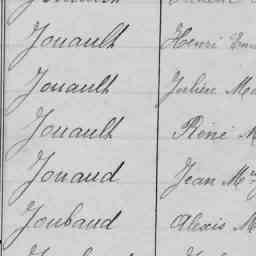 Jouault Henri
Jouault Julien
Jouault René
Jouaud Jean
Joubaud Alexis